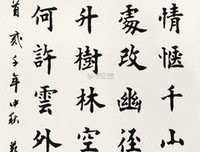 情惬千山
處改幽徑
升樹林空
何許雲外
首貳千年中秋